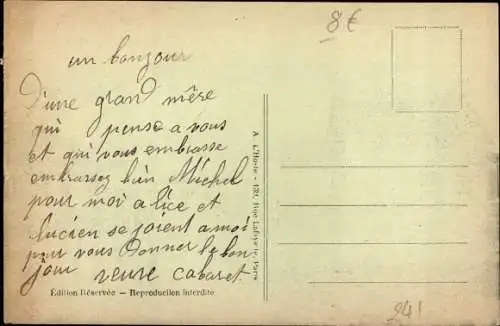 8€
un bonjour
d'une grand mère
qui pense a vous
et qui vous embrasse
embrassez bien Michel
pour moi alice et
lucien se joient a moi
pour vous Donner le bon
jour veuve cabaret
Edition Réservée — Reproduction interdite
A. L'Hoste - 132, Rue Lafayette, Paris
241